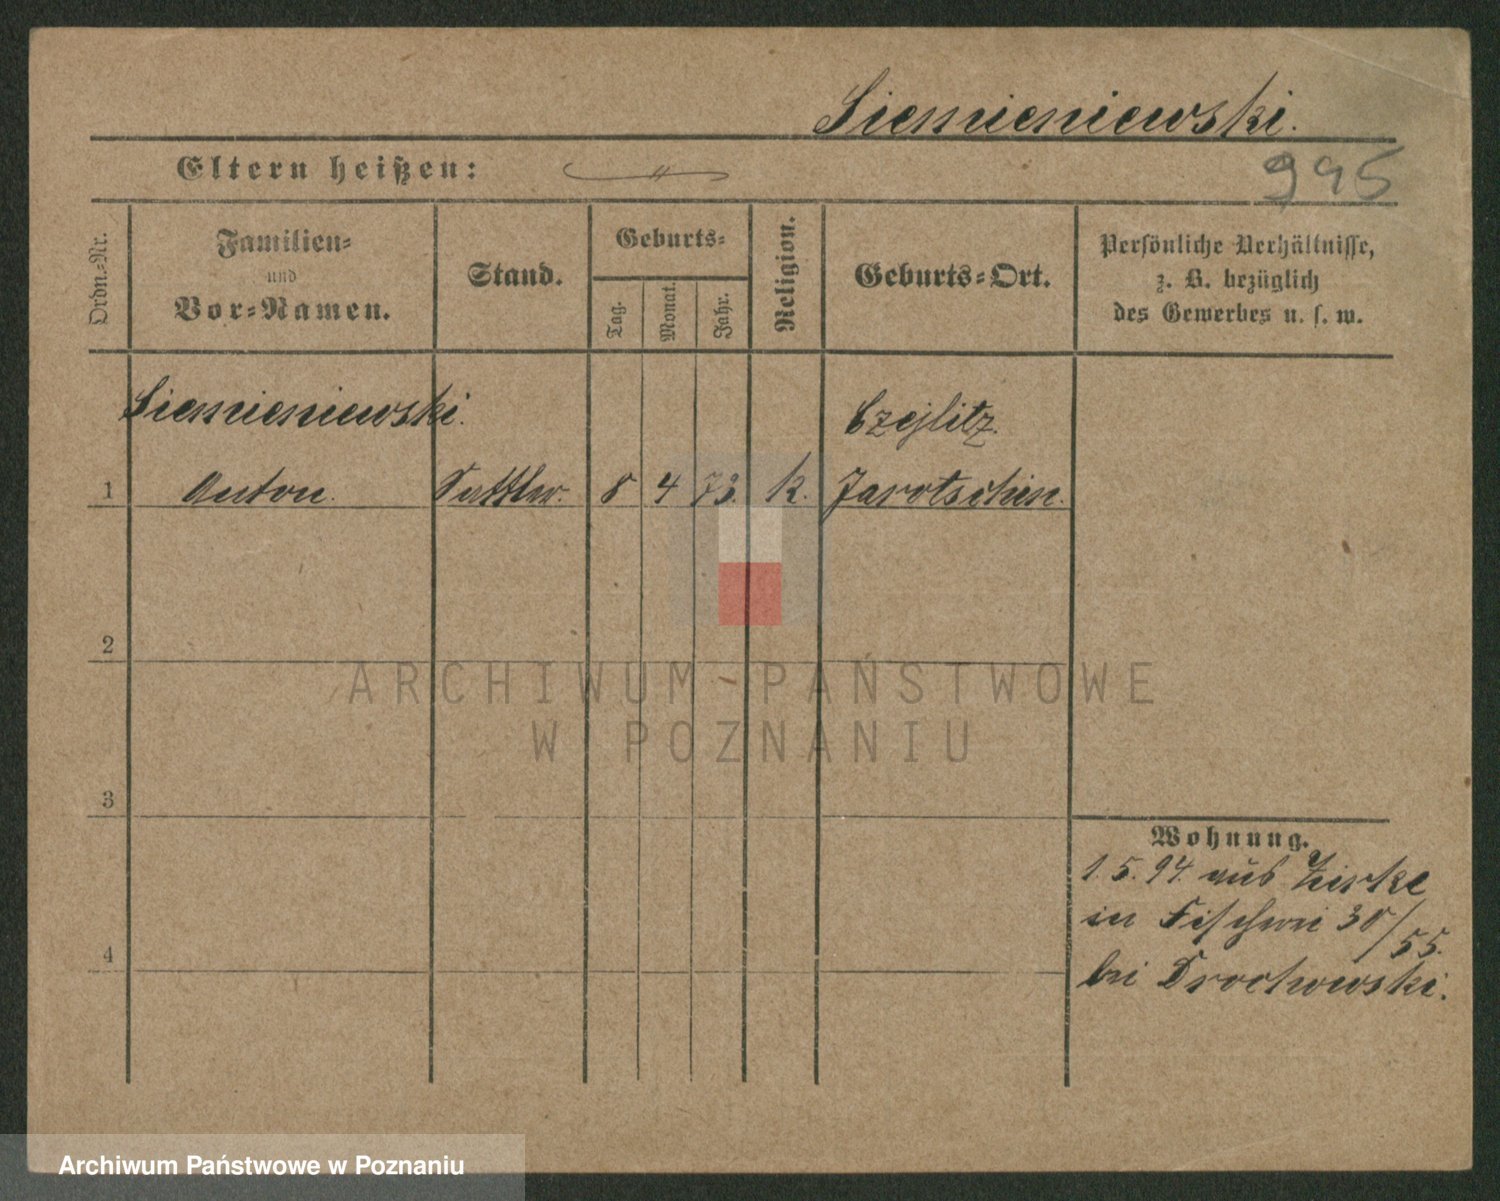 Siemieniewski.
Eltern heißen: —"—
995
Ordn.=Nr.
Familien=
und
Vor=Namen.
Stand.
Geburts=
Tag.
Monat.
Jahr.
Religion.
Geburts=Ort.
Persönliche Verhältnisse,
z. B. bezüglich
des Gewerbes u. s. w.
Siemieniewski.
Czejlitz.
1 Anton. Sattler. 8 4 73. k. Jarotschin.
2
ARCHIWUM PAŃSTWOWE
W POZNANIU
3
Wohnung.
1. 5. 94. aus Zirke
in Fischerei 30/55.
4
bei Drochowski.
Archiwum Państwowe w Poznaniu